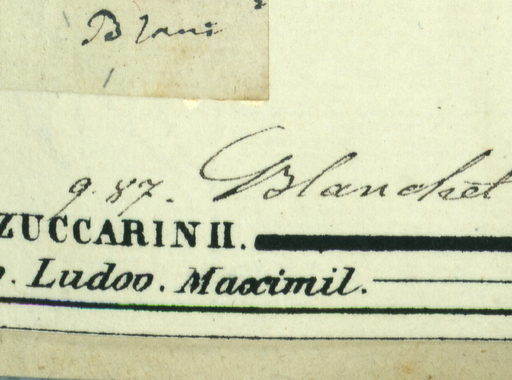 9. 87. Blanchet
ZUCCARINII.
. Ludov. Maximil.